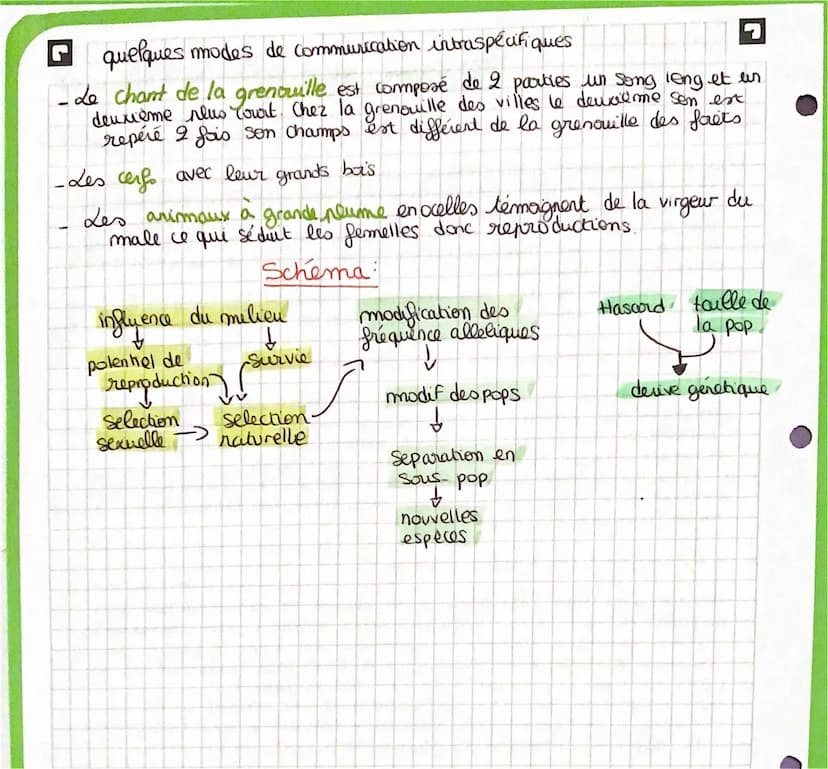 quelques modes de communication intraspécifiques
- Le chant de la grenouille est composé de 2 parties un song leng et un
deuxième plus court. Chez la grenouille des villes le deuxième son est
repéré 2 fois son champs est différent de la grenouille des forêts
- Les cerfs avec leur grands bois
- Les animaux à grande plume en ocelles témoignent de la virgeur du
male ce qui séduit les femelles donc reproductions.
Schéma:
influence du milieu
potentiel de
reproduction
survie
selection
sexuelle
selection
naturelle
modification des
fréquence alleliques
modif des pops
separation en
sous-pop
nouvelles
espèces
Hasard
taille de
la pop
derive génétique